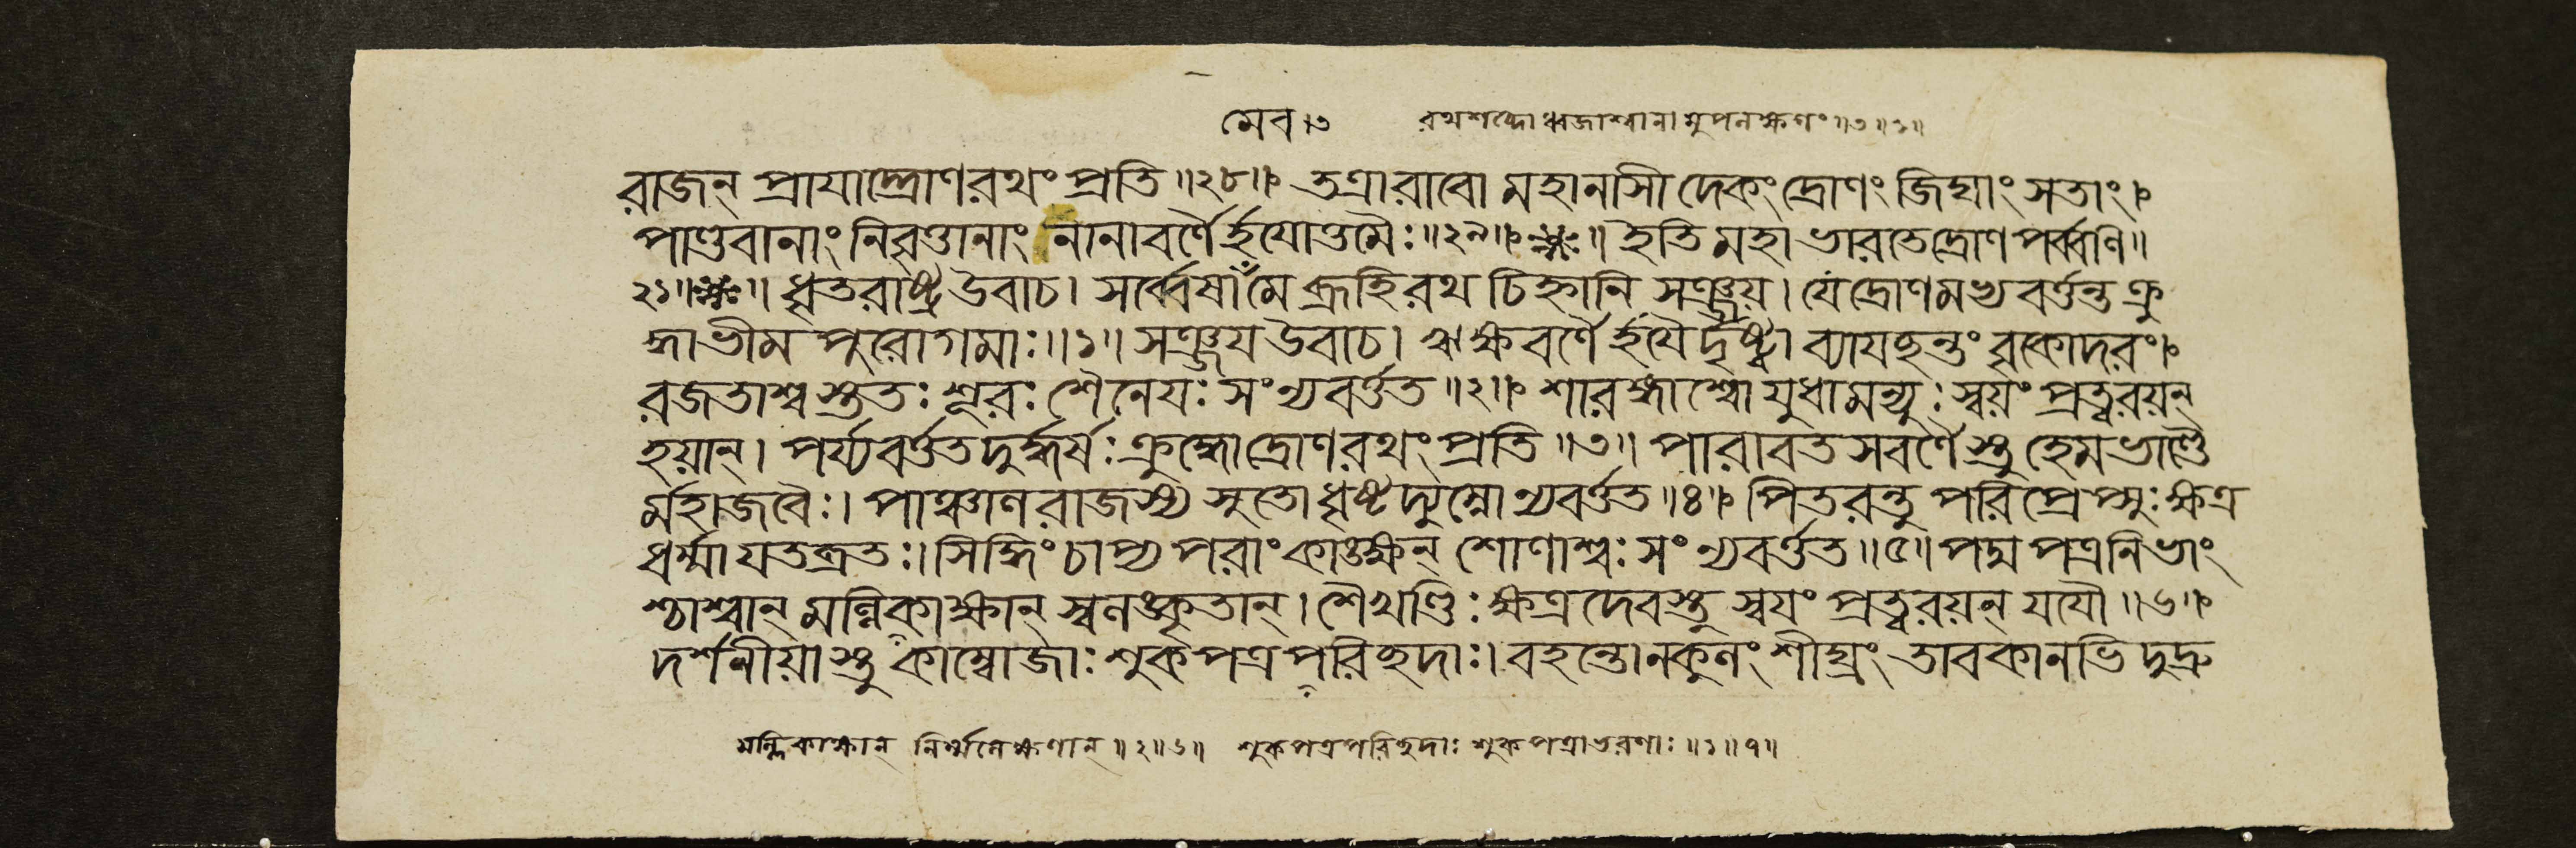 মেব।৩ রথশব্দো ধ্বজাশ্বানামুপলক্ষণং॥৩॥১॥
রাজন্ প্রাযাদ্দ্রোণরথং প্রতি॥২৮॥ তত্রারাবো মহানাসীদেকং দ্রোণং জিঘাংসতাং।
পাণ্ডবানাং নিবৃত্তানাং নানাবর্ণৈর্হযোত্তমৈঃ॥২৯॥ ॥ ইতি মহাভারতে দ্রোণপর্ব্বণি॥
২১॥ ॥ ধৃতরাষ্ট্র উবাচ। সর্ব্বেষাং মে ব্রূহি রথচিহ্নানি সঞ্জয়। যে দ্রোণমভ্যবর্ত্তন্ত ক্রু
দ্ধা ভীমপুরোগমাঃ॥১॥ সঞ্জয উবাচ। ঋক্ষবর্ণৈর্হযৈর্দৃষ্ট্বা ব্যাযচ্ছন্তং বৃকোদরং।
রজতাশ্বস্তুতঃ শূরঃ শৈনেযঃ সংন্যবর্ত্তত॥২॥ শারঙ্গাশ্বো যুধামন্যুঃ স্বয়ং প্রত্বরয়ন্
হয়ান্। পর্য্যবর্ত্তত দুর্দ্ধর্ষঃ ক্রুদ্ধো দ্রোণরথং প্রতি॥৩॥ পারাবতসবর্ণৈস্তু হেমভাণ্ডৈ
র্মহাজবৈঃ। পাঞ্চালরাজস্য সুতো ধৃষ্টদ্যুম্নো ন্যবর্ত্তত॥৪॥ পিতরন্তু পরিপ্রেপ্সুঃ ক্ষত্র
ধর্ম্মা যতব্রতঃ। সিদ্ধিং চাপ্য পরাং কাঙ্ক্ষন্ শোণাশ্বঃ সংন্যবর্ত্তত॥৫॥ পদ্মপত্রনিভাং
শ্চাশ্বান্ মল্লিকাক্ষান্ স্বলঙ্কৃতান্। শৈখণ্ডিঃ ক্ষত্রদেবস্তু স্বযং প্রত্বরয়ন্ যযৌ॥৬॥
দর্শনীয়াস্তু কাম্বোজাঃ শুকপত্রপরিচ্ছদাঃ। বহন্তো নকুলং শীঘ্রং তাবকানভিদুদ্রু
মল্লিকাক্ষান্ নির্ম্মলেক্ষণান্॥২॥৬॥ শুকপত্রপরিচ্ছদাঃ শুকপত্রাভরণাঃ॥১॥৭॥